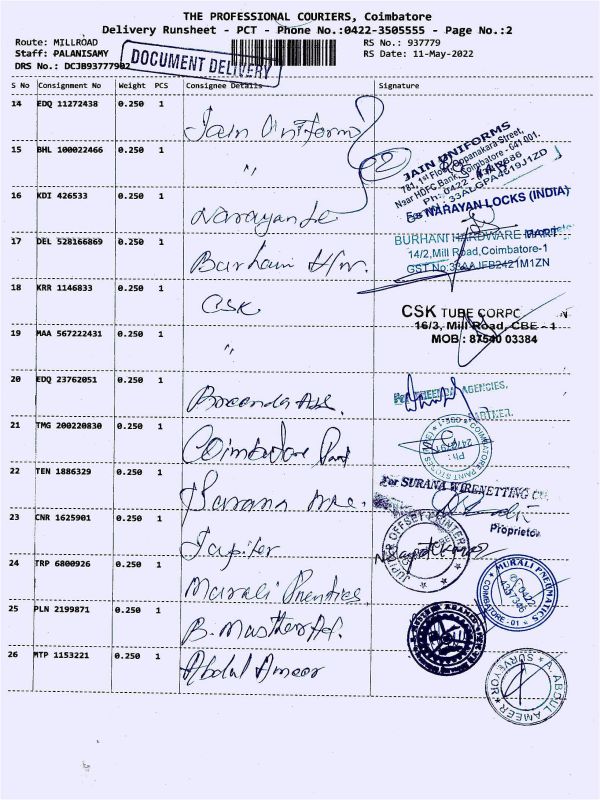 THE PROFESSIONAL COURIERS, Coimbatore
Delivery Runsheet - PCT - Phone No.:0422-3505555 - Page No.:2
Route: MILLROAD RS No.: 937779
Staff: PALANISAMY RS Date: 11-May-2022
DRS No.: DCJB93777902
DOCUMENT DELIVERY
S No Consignment No Weight PCS Consignee Details Signature
14 EDQ 11272438 0.250 1 Jain Uniforms
15 BHL 100022466 0.250 1 "
JAIN UNIFORMS
781, 1st Floor, Oppanakara Street,
Near HDFC Bank, Coimbatore - 641 001.
Ph: 0422
33ALGPA4619J1ZD
16 KDI 426533 0.250 1 Narayan
For NARAYAN LOCKS (INDIA)
17 DEL 528166869 0.250 1 Burhani H/w.
BURHANI HARDWARE MART
14/2,Mill Road,Coimbatore-1
GST No:33AAJFB2421M1ZN
18 KRR 1146833 0.250 1 CSK
CSK TUBE CORPC
16/3, Mill Road, CBE - 1
MOB : 87540 03384
19 MAA 567222431 0.250 1 "
20 EDQ 23762051 0.250 1
AGENCIES,
PARTNER.
21 TMG 200220830 0.250 1 Coimbatore Paint
COIMBATORE PAINT STORES
22 TEN 1886329 0.250 1 Surana
For SURANA WIRENETTING CO.
Proprietor
23 CNR 1625901 0.250 1 Jupiter
JUPITER OFFSET PRINTERS
24 TRP 6800926 0.250 1 Murali
MURALI PNEUMATICS
COIMBATORE - 01
25 PLN 2199871 0.250 1
26 MTP 1153221 0.250 1 Abdul Ameer
A. ABDUL AMEER
SURVEYOR